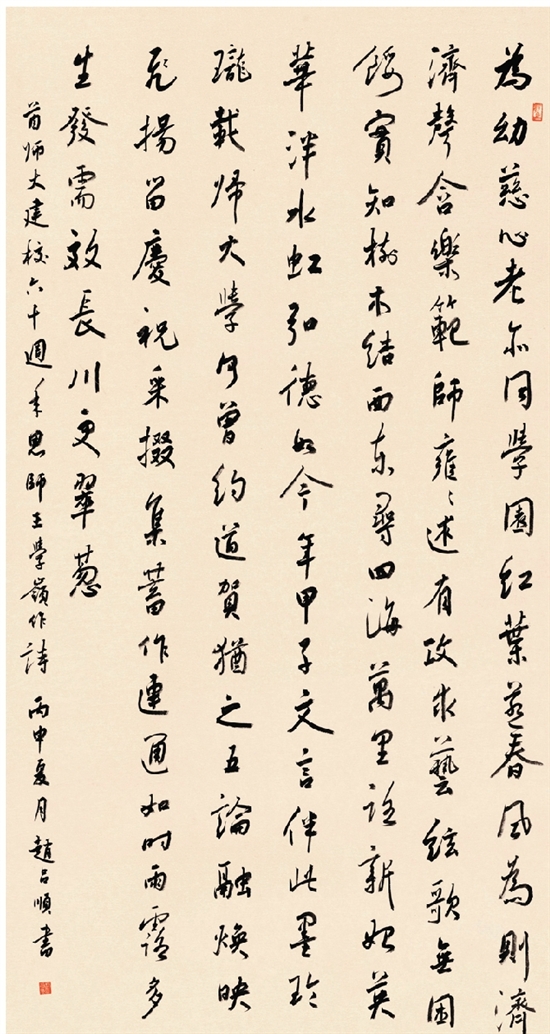 為幼慈心老亦同學園紅葉藍春風為則濟
濟聲含樂範師雍〻述有政求藝絃歌無困
餒實知樹木結西东尋四海萬里詠新妝英
華泮水虹弘德如今年甲子文言伴此墨玲
瓏載帰大學何曾約道賀猶之五論融煥映
飛揚留慶祝采掇集蓄作連通如时雨露多
生發需效長川更翠葱
首师大建校六十週年恩師王學嶺作詩 丙申夏月趙呂順書